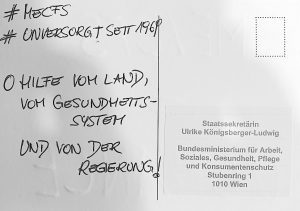 #MECFS
# UNVERSORGT SEIT 1969
0 HILFE VOM LAND,
VOM GESUNDHEITS-
SYSTEM
UND VON DER
REGIERUNG!
Staatssekretärin
Ulrike Königsberger-Ludwig
Bundesministerium für Arbeit,
Soziales, Gesundheit, Pflege
und Konsumentenschutz
Stubenring 1
1010 Wien